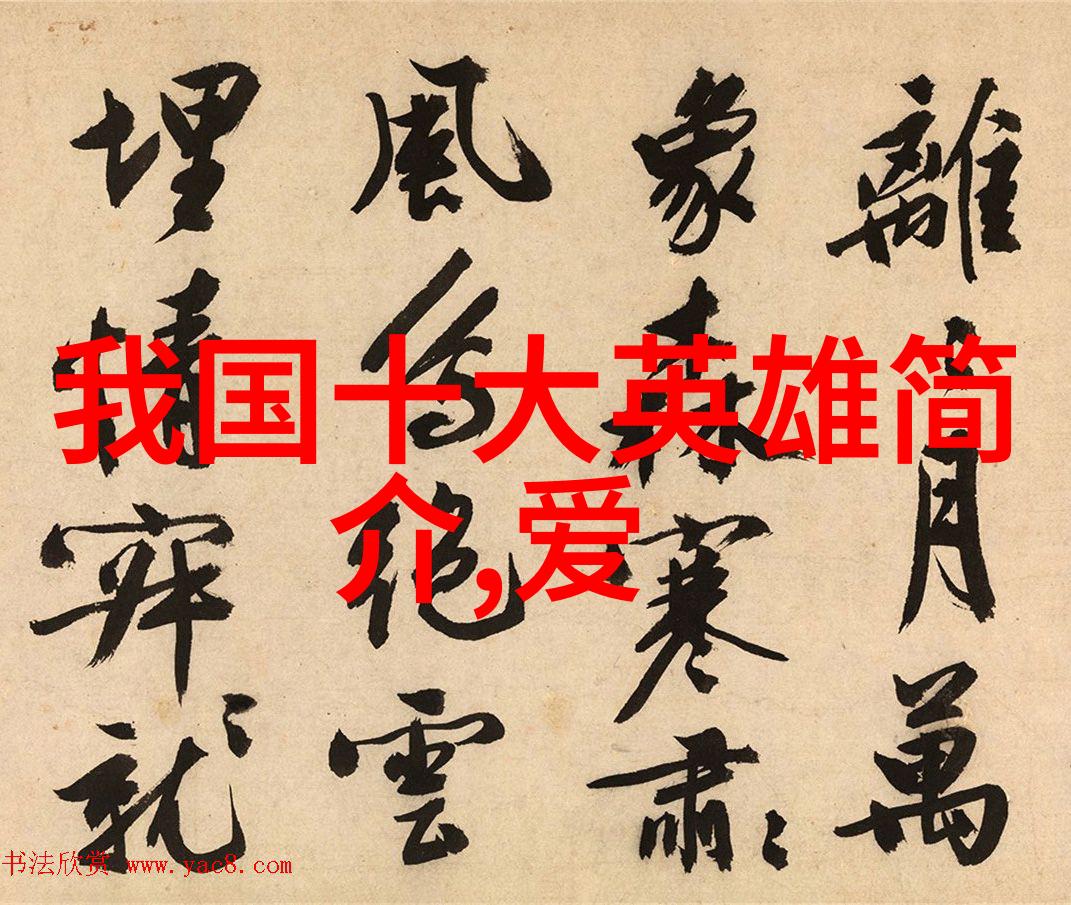 我国十大英雄简
介,爱
離月萬
象森寒肅
風絕雲
埋就
书法欣赏 www.yac8.com